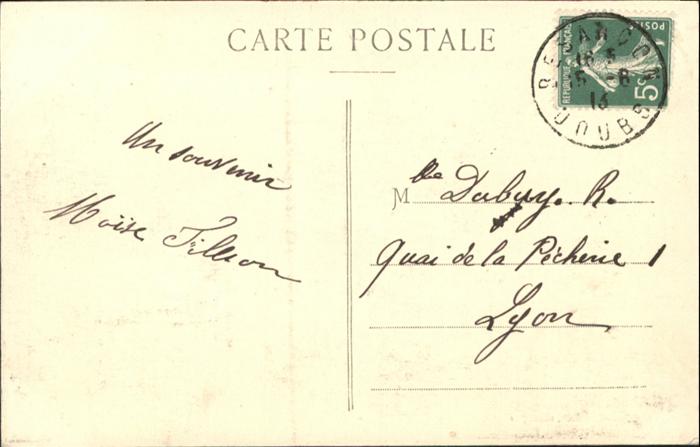 CARTE POSTALE
REPUBLIQUE FRANÇAISE
POSTES
5c
BESANÇON
16 5
15 -8
13
DOUBS
Un souvenir
Moïse Tillion
Mlle Dubuy. R.
Quai de la Pécherie 1
Lyon